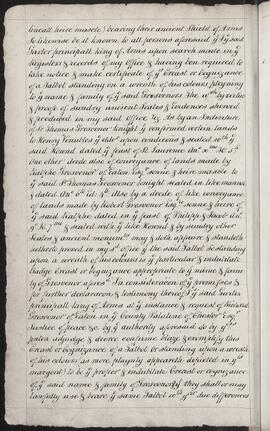 lineall heire masculs) bearing their ancient Shield of Arms
So likewise be it known to all persons aforesaid yt I ye said
Garter principall king of Arms upon search made in ye
Registers & records of my Office & having ben required to
take notice & make certificate of ye Creast or cognizance
of a Talbot standing on a wreath of his colours belonging
to ye name & family of ye said Grosvenors The like by value
& proofe of sunday ancient Seales & Evidences shewed
& produced in my said office (Eg. As by an Indenture
of Sr. Thomas Grosvenor knight yt confirmed certen lands
to Henry ye elder upon Arderons & sealed with ye
said Kernd dated ye feast of St. Laurence Ano H. 5
One other deede also of conveyance of lands made by
Raulphe Grosvenor of Eaton Esqr sonne & heire masle to
ye said Sr Thomas Grosvenor knight sealed in like manner
& dated Ano 6o Ed. 4ti Also by a deede of like conveyance
of lands made by Robert Grosvenor Esqr sonne & heire of
ye said Raulphe dated in ye feast of Philipp & Jacob Ano
9o H. 7mi & sealed with ye like Kernd & by sundry other
Seales & ancient monymts may & doth appeare & standeth
herewth proved in my sd office ye said Talbot so standing
upon a wreath of his colours is ye particular & indubitate
Badge Creast or Cognizance appropriate to ye name & fam-
ily of Grosvenor aforesd In consideracon of ye premisses &
for further declaracon & testimony thereof I ye said Garter
principall king of Arms at ye instance & request of Richard
Grosvenor of Eaton in ye County Palatine of Chester Esqr
Justice of peace &c. by ye authority aforesaid do by yse prsts
ratifie adjudge & decree confirme blaze & exemplify this
Creast or Cognizance of a Talbot so standing upon a wreath
of his colours as more playnly appeareth depicted in ye
margent) to be ye proper & indubitate Creast or Cognizance
of ye said name & family of Grosvenor & yt they shall or may
lawfully use & beare ye same Talbot wth yeir due differences